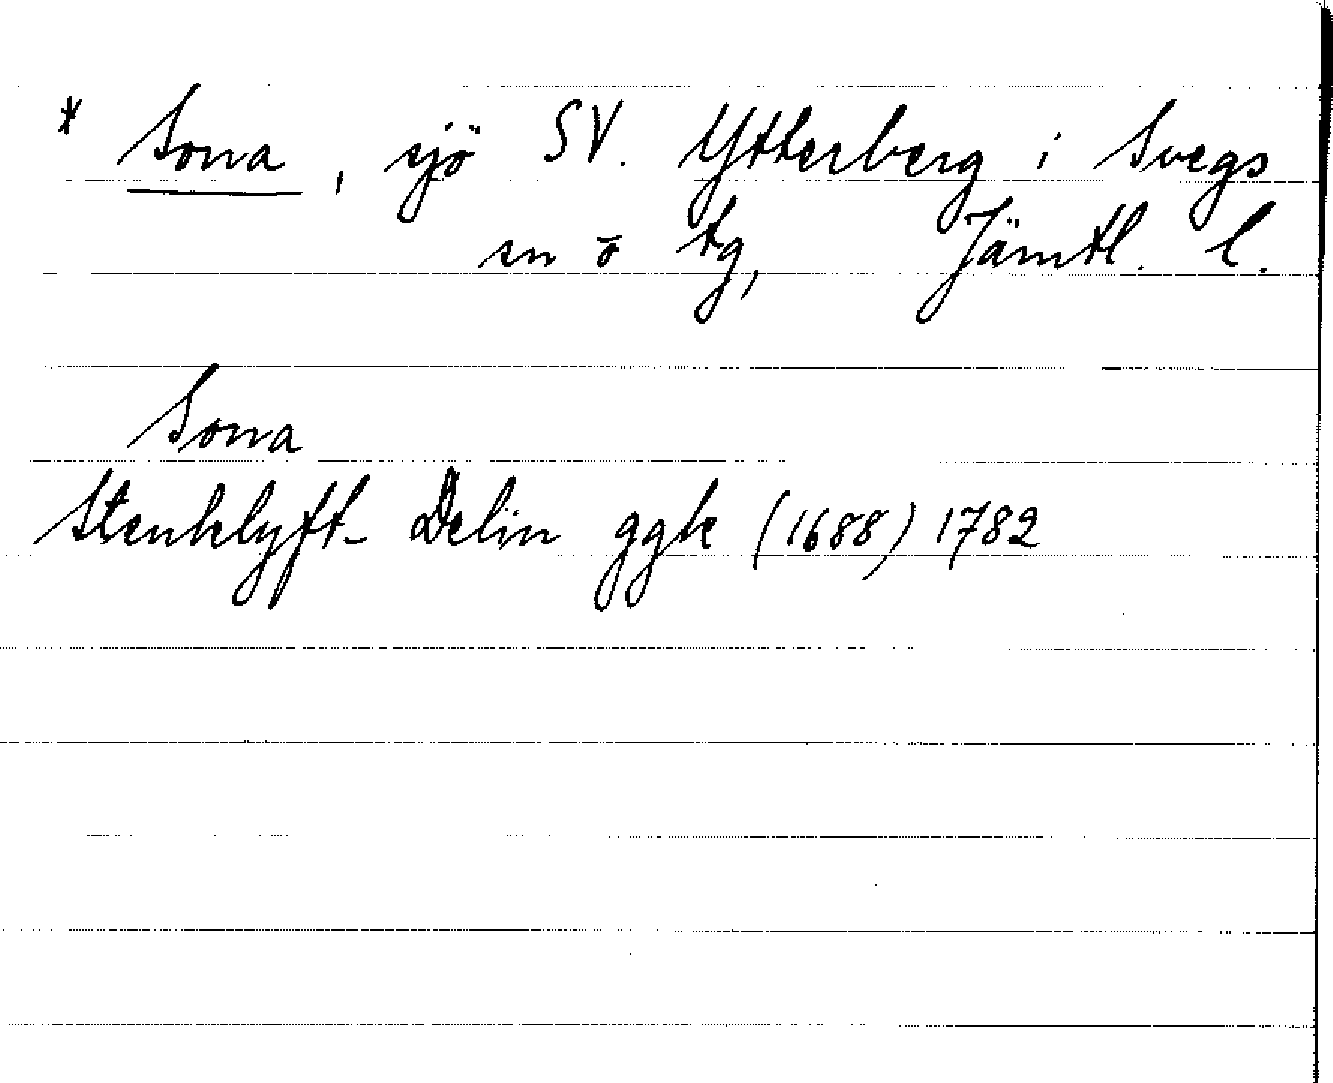 * Sona, sjö SV. Ytterberg i Svegs
sn ō tg, Jämtl. l.
Sona
Stenklyft- Delin ggk (1688) 1782